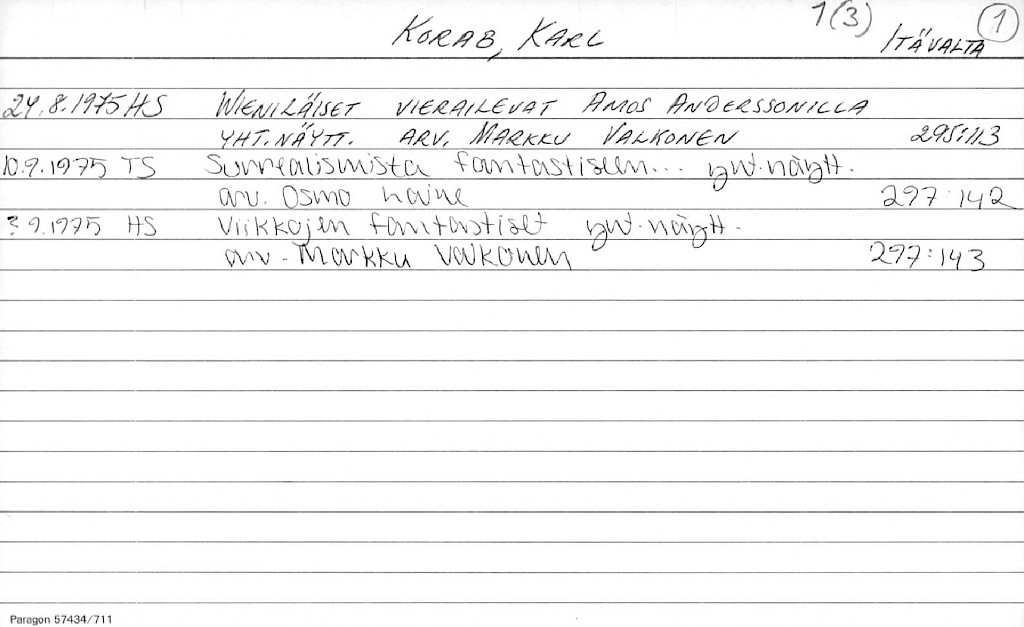 1(3)
KORAB, KARL ITÄVALTA 1
24.8.1975 HS WIENILÄISET VIERAILEVAT AMOS ANDERSSONILLA
YHT.NÄYTT. ARV. MARKKU VALKONEN 295:113
10.9.1975 TS Surrealismista fantastiseen... yht.näytt.
arv. Osmo Laine 297:142
? 9.1975 HS Viikkojen fantastiset yht.näytt.
arv. Markku Valkonen 297:143
Paragon 57434/711